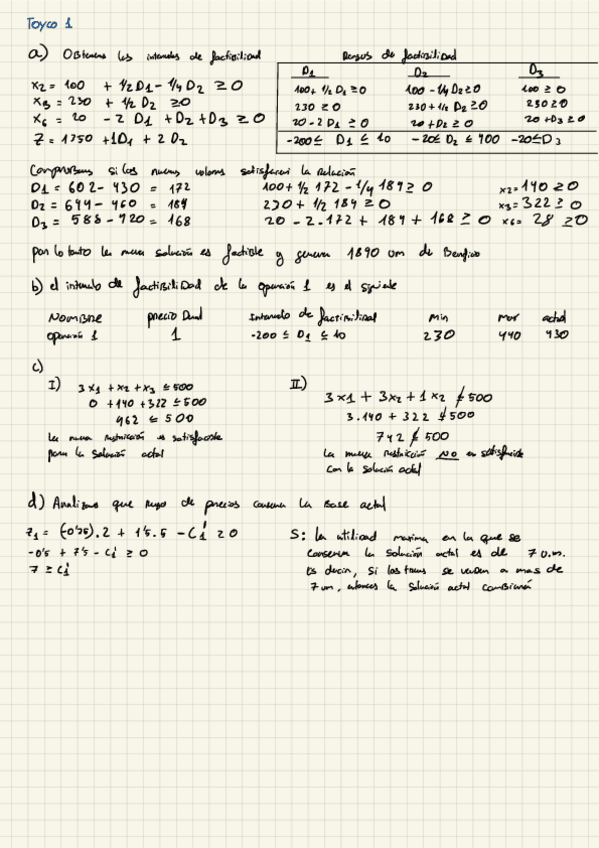 Toyco 1
a) Obtenemos los intervalos de factibilidad
Rangos de factibilidad
x2 = 100 + 1/2 D1 - 1/4 D2 ≥ 0
x3 = 230 + 1/2 D2 ≥ 0
x6 = 20 - 2 D1 + D2 + D3 ≥ 0
Z = 1350 + 1D1 + 2 D2
D1 D2 D3
100 + 1/2 D1 ≥ 0 100 - 1/4 D2 ≥ 0 100 ≥ 0
230 ≥ 0 230 + 1/2 D2 ≥ 0 230 ≥ 0
20 - 2 D1 ≥ 0 20 + D2 ≥ 0 20 + D3 ≥ 0
-200 ≤ D1 ≤ 10 -20 ≤ D2 ≤ 400 -20 ≤ D3
Comprobamos si los nuevos valores satisfacen la relación
D1 = 602 - 430 = 172 100 + 1/2 172 - 1/4 184 ≥ 0 x2 = 140 ≥ 0
D2 = 644 - 460 = 184 230 + 1/2 184 ≥ 0 x3 = 322 ≥ 0
D3 = 588 - 420 = 168 20 - 2 · 172 + 184 + 168 ≥ 0 x6 = 28 ≥ 0
por lo tanto la nueva solución es factible y genera 1890 um de Beneficio
b) el intervalo de factibilidad de la operación 1 es el siguiente
Nombre precio Dual Intervalo de factibilidad min max actual
operación 1 1 -200 ≤ D1 ≤ 10 230 440 430
c)
I) 3x1 + x2 + x3 ≤ 500
0 + 140 + 322 ≤ 500
462 ≤ 500
La nueva restricción es satisfecha
para la solución actual
II) 3x1 + 3x2 + 1x2 ≰ 500
3.140 + 322 ≰ 500
742 ≰ 500
La nueva restricción NO es satisfecha
con la solución actual
d) Analizamos que rango de precios conserva la Base actual
z1 = (-0'25).2 + 1'5.5 - c1' ≥ 0
-0'5 + 7'5 - c1' ≥ 0
7 ≥ c1'
S: La utilidad maxima en la que se
conserva la solución actual es de 7 u.m.
Es decir, si los trenes se venden a mas de
7 um, entonces la solución actual cambiará